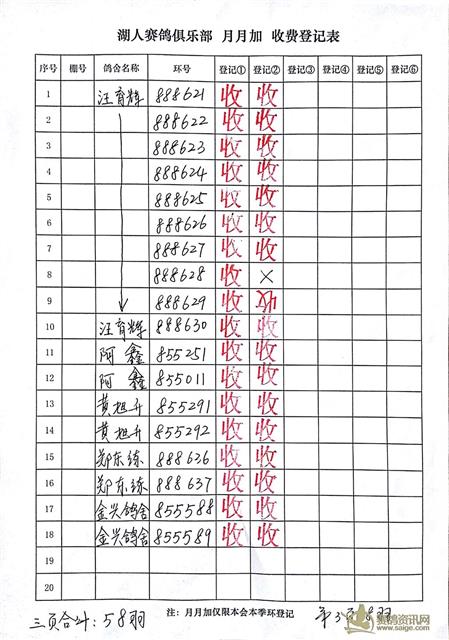 湖人赛鸽俱乐部 月月加 收费登记表
序号 棚号 鸽舍名称 环号 登记① 登记② 登记③ 登记④ 登记⑤ 登记⑥
1 汪育辉 888621 收 收
2 888622 收 收
3 888623 收 收
4 888624 收 收
5 888625 收 收
6 888626 收 收
7 888627 收 收
8 888628 收 ×
9 888629 收
10 汪育辉 888630 收 收
11 阿鑫 855251 收 收
12 阿鑫 855011 收 收
13 黄旭升 855291 收 收
14 黄旭升 855292 收 收
15 郑东练 888636 收 收
16 郑东练 888637 收 收
17 金兴鸽舍 855588 收 收
18 金兴鸽舍 855589 收 收
19
20
注：月月加仅限本会本季环登记
三页合计：58羽
第3页
赛鸽资讯网